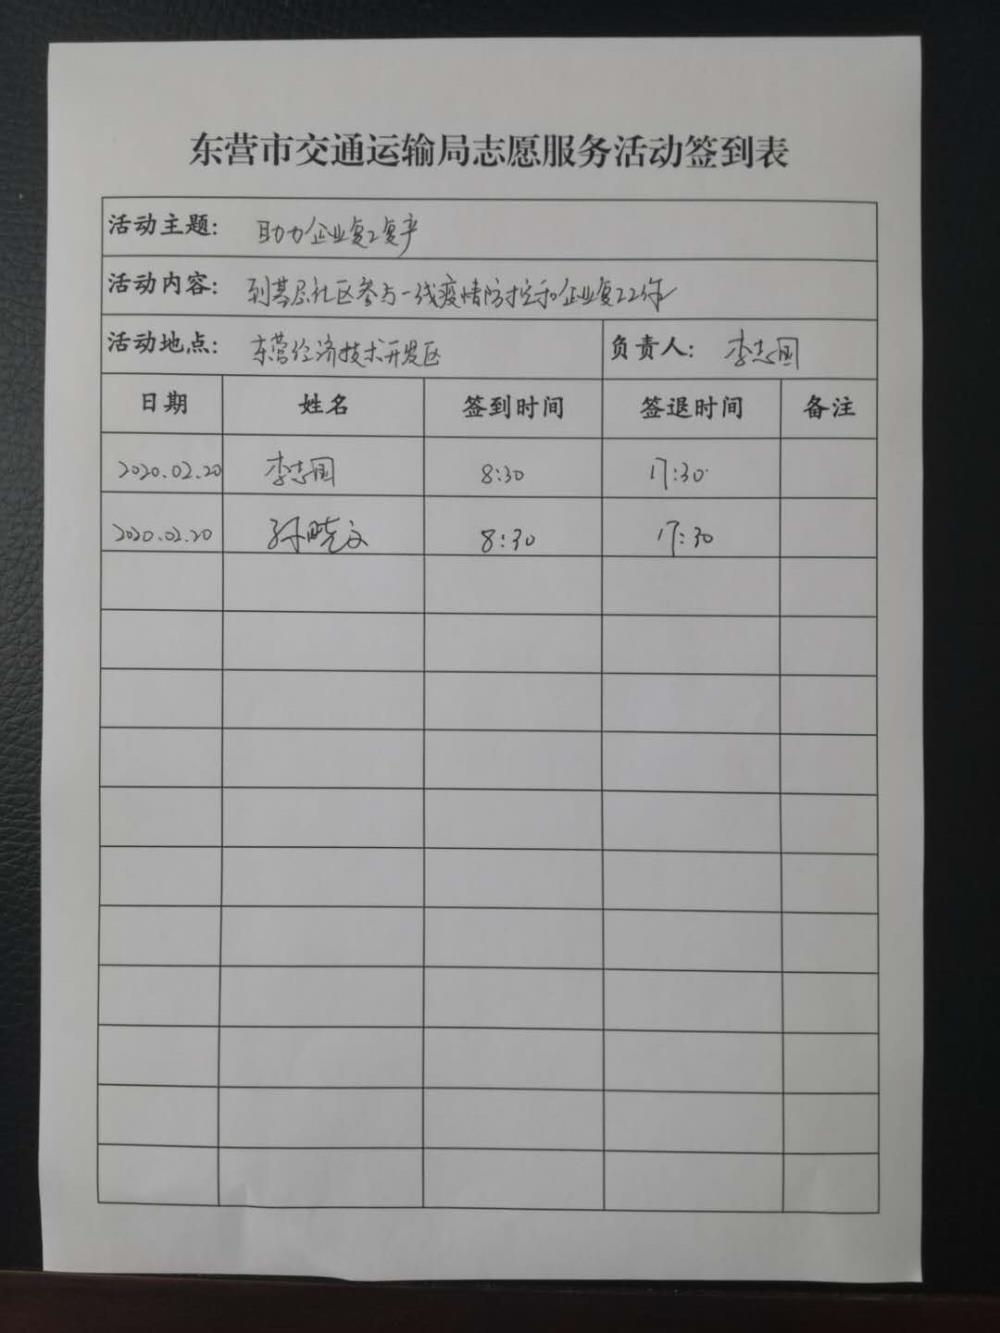 东营市交通运输局志愿服务活动签到表
活动主题: 助力企业复工复产
活动内容: 到基层社区参与一线疫情防控和企业复工工作
活动地点: 东营经济技术开发区 负责人: 李志国
日期 姓名 签到时间 签退时间 备注
2020.02.20 李志国 8:30 17:30
2020.02.20 孙晓文 8:30 17:30